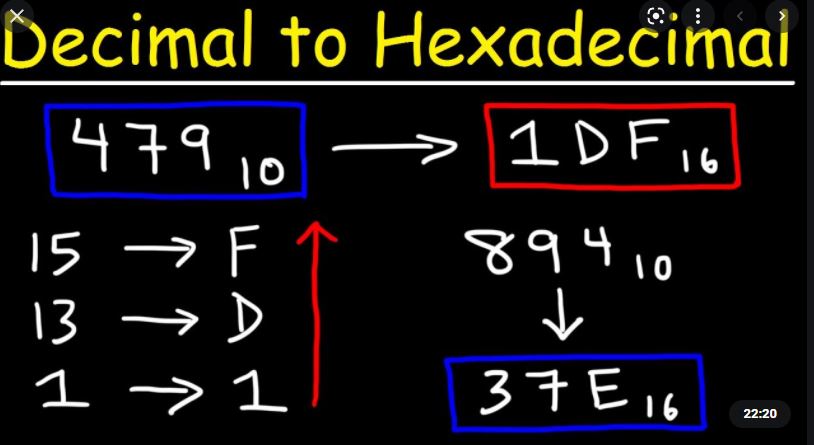 Decimal to Hexadecimal
479₁₀ → 1DF₁₆
15 → F
13 → D
1 → 1
894₁₀
↓
37E₁₆
22:20